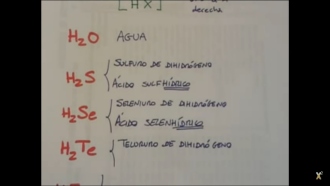 [HX]
derecha
H₂O AGUA
H₂S SULFURO DE DIHIDRÓGENO
ÁCIDO SULFHÍDRICO
H₂Se SELENIURO DE DIHIDRÓGENO
ÁCIDO SELENHÍDRICO
H₂Te TELORURO DE DIHIDRÓGENO